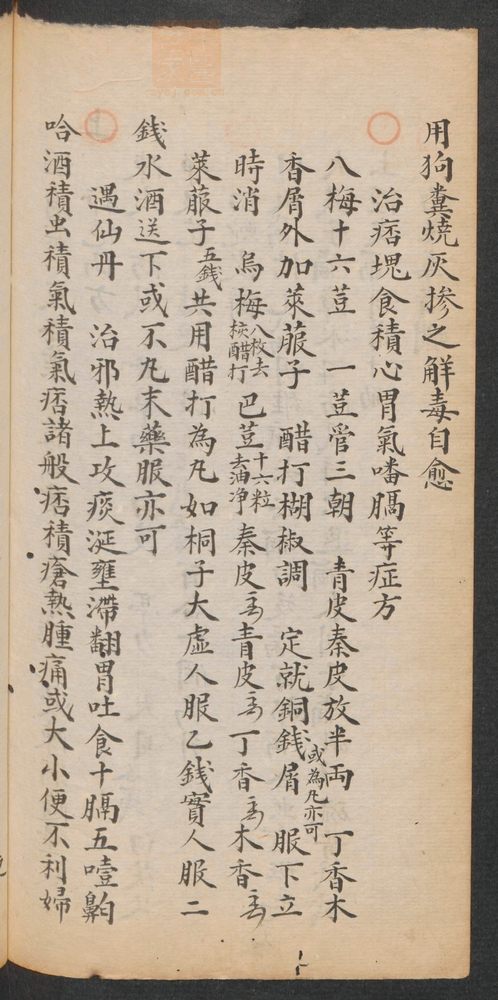 用狗糞燒灰掺之解毒自愈
治痞塊食積心胃氣噃膈等症方
八梅十六荳　一荳管三朝　青皮秦皮放半両　丁香木
香屑外加萊菔子　醋打糊椒調　定就銅錢屑 或為凡亦可 服下立
時消　烏梅 八枚去核醋打 巴荳 十六粒去油净 秦皮 青皮 丁香 木香
萊菔子 五錢 共用醋打為凡如桐子大虛人服乙錢實人服二
錢水酒送下或不凡末藥服亦可
遇仙丹　治邪熱上攻痰涎壅滯翻胃吐食十膈五噎齁
哈酒積虫積氣積氣痞諸般痞積瘡熱腫痛或大小便不利婦